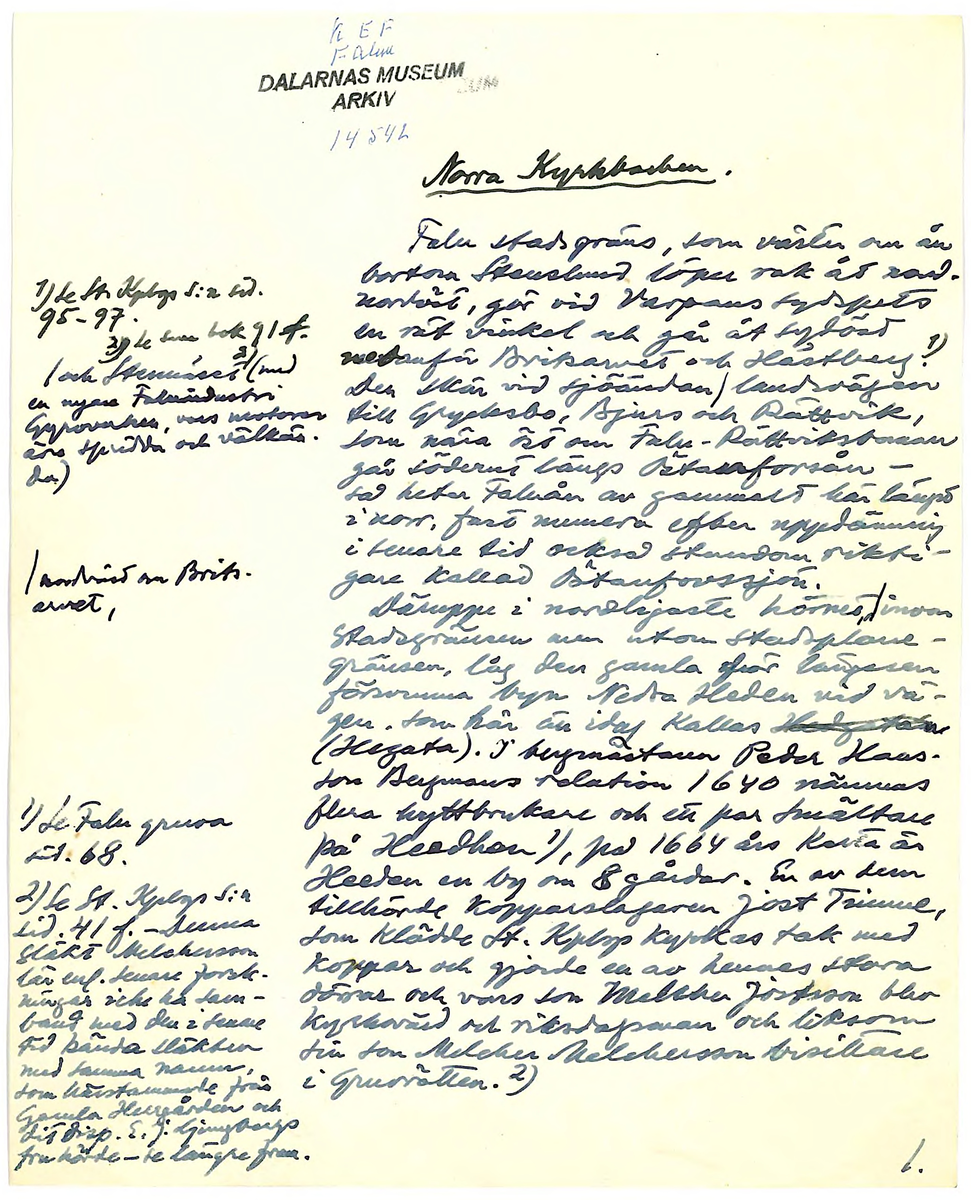 K E F
Falun
DALARNAS MUSEUM
ARKIV
14542
Norra Kyrkbacken.
Falu stadsgräns, som väster om ån
bortom Stenslund löper rak åt nord-
nordöst, gör vid Varpans sydspets
en rät vinkel och går åt sydöst
nedanför Briksarvet och Hästberg.1)
Den skär vid sjöändan/landsvägen
till Grycksbo, Bjurs och Rättvik,
som nära öst om Falu-Rättviksbanan
går söderut längs Östanforsån –
så heter Faluån av gammalt här längst
i norr, fast numera efter uppdämning
i senare tid också stundom rikti-
gare kallad Östanforssjön.
Däruppe i nordligaste hörnet,/inom
stadsgränsen men utom stadsplane-
gränsen, låg den gamla för längesen
försvunna byn Nedra Heden vid vä-
gen, som här än idag kallas
(Hegata). I bergmästaren Peder Hans-
son Bergmans relation 1640 nämnas
flera hyttbrukare och ett par smältare
på Heedhen1), på 1664 års karta är
Heeden en by om 8 gårdar. En av dem
tillhörde kopparslagaren Jost Trimme,
som klädde St. Kpbgs kyrkas tak med
koppar och gjorde en av hennes stora
dörrar och vars son Melcher Jostsson blev
kyrkovärd och riksdagsman och liksom
sin son Melcher Melchersson bisittare
i Gruvrätten.2)
1) Se St. Kpbgs s:n sid.
95-97.
2) Se sam bok 91 f.
/och Stennäset2) (med
en nyare Faluindustri
Gyroverken, vars motorer
äro spridda och välkän-
da)
/nordväst om Briks-
arvet,
1) Se Falu gruva
sid. 68.
2) Se St. Kpbgs s:n
sid. 41 f. – Denna
släkt Melchersson
lär enl. senare forsk-
ningar icke ha sam-
band med den i senare
tid kända släkten
med samma namn,
som härstammade från
Gamla Herrgården och
dit disp. E. J. Ljungbergs
fru hörde – se längre fram.
1.